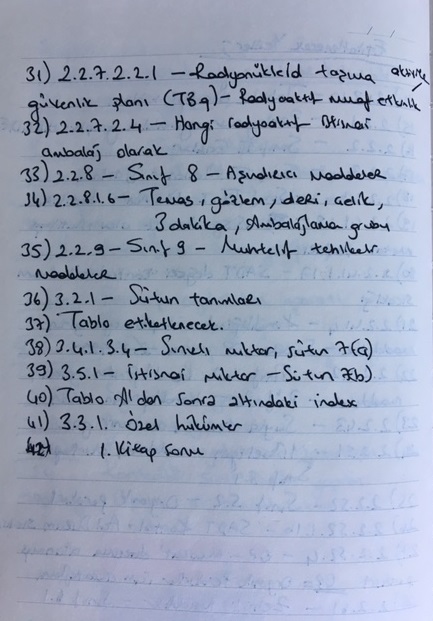 31) 2.2.7.2.2.1 – Radyonüklid taşıma aktivite
güvenlik planı (TBq) – Radyoaktif muaf etkinlik
32) 2.2.7.2.4 – Hangi radyoaktif istisnai
ambalaj olarak
33) 2.2.8 – Sınıf 8 – Aşındırıcı Maddeler
34) 2.2.8.1.6 – Temas, gözlem, deri, çelik,
3 dakika, Ambalajlama grubu
35) 2.2.9 – Sınıf 9 – Muhtelif tehlikeli
maddeler
36) 3.2.1 – Sütun tanımları
37) Tablo etiketlenecek.
38) 3.4.1.3.4 – Sınırlı miktar, sütun 7(a)
39) 3.5.1 – İstisnai miktar – Sütun 7(b)
40) Tablo A'dan sonra altındaki index
41) 3.3.1. Özel hükümler
42) 1. Kitap sonu